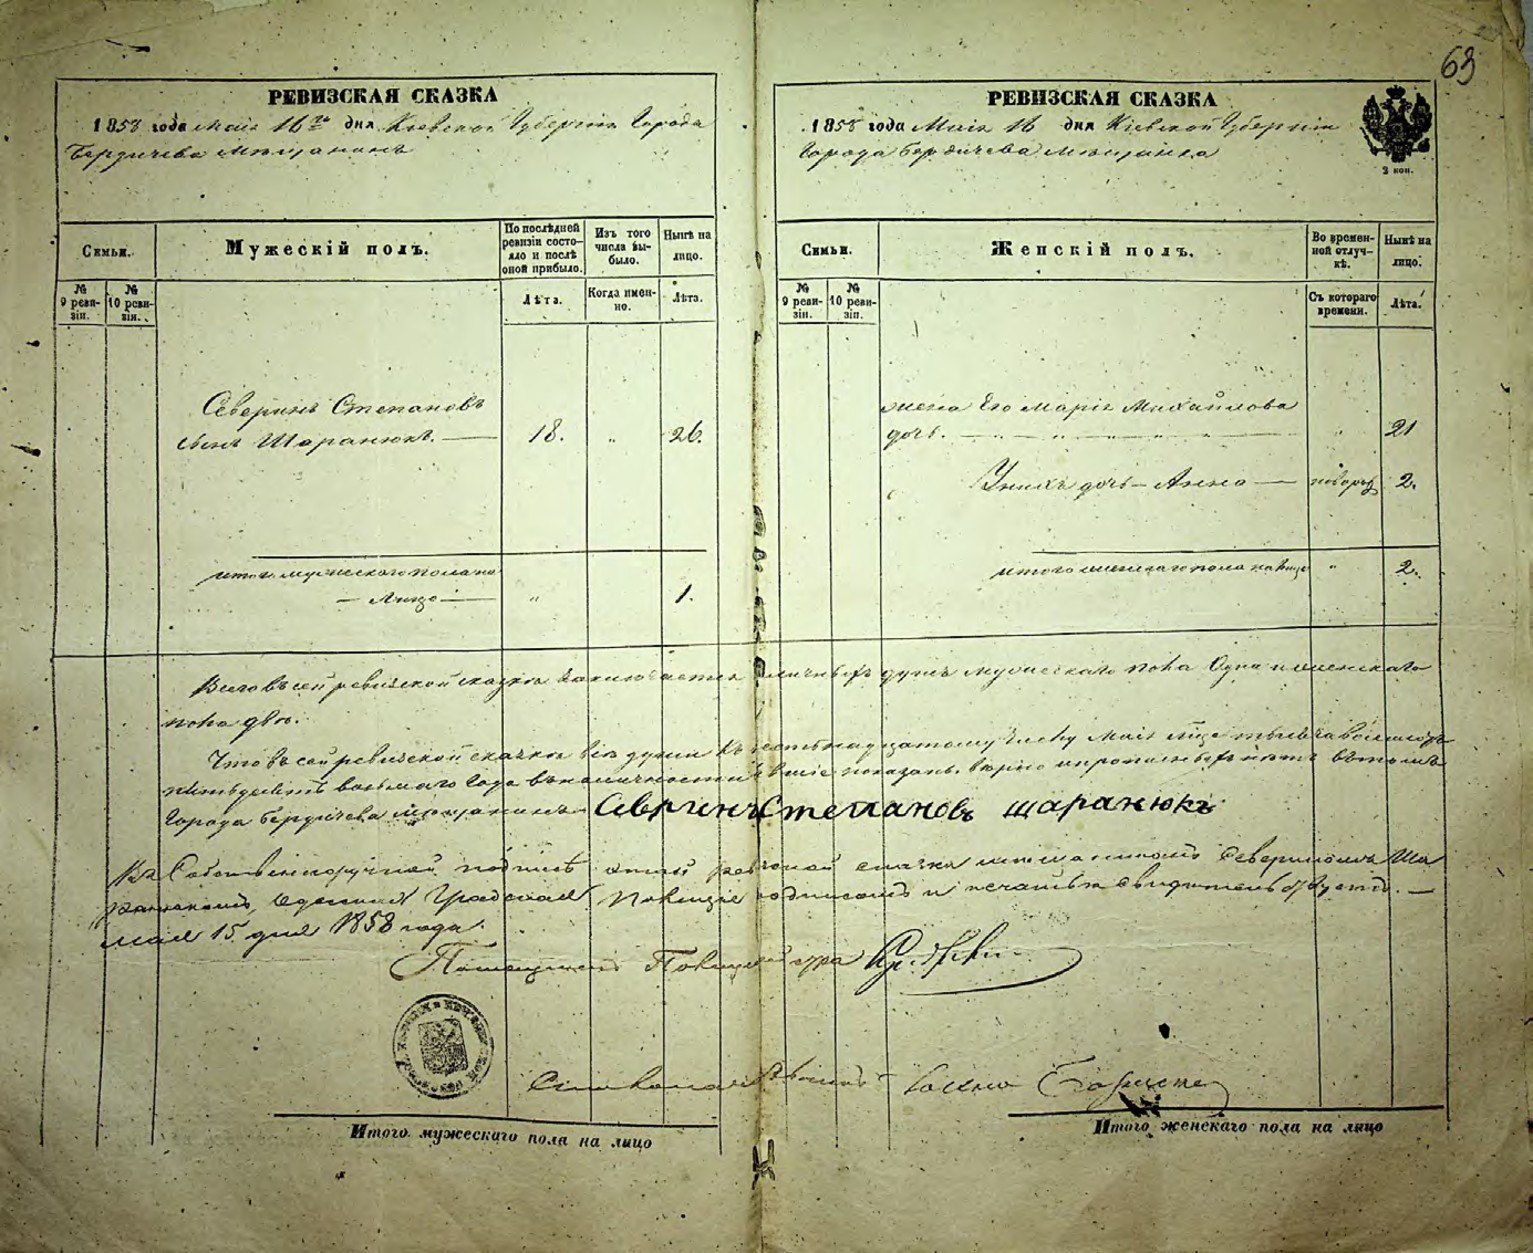 63
РЕВИЗСКАЯ СКАЗКА
1858 года Маія 16го дня Кіевской Губерніи Города
Бердичева мѣщанинъ
Семьи.
Мужескій полъ.
По послѣдней ревизіи состояло и послѣ оной прибыло.
Изъ того числа выбыло.
Нынѣ на лицо.
№ 9 ревизіи.
№ 10 ревизіи.
Лѣта.
Когда именно.
Лѣта.
Северинъ Степановъ
сынъ Шаранюкъ. 18. „ 26.
итого мужескаго пола на
лицо „ 1.
РЕВИЗСКАЯ СКАЗКА
1858 года Маія 16 дня Кіевской Губерніи
Города Бердичева мѣщанка
3 коп.
Семьи.
Женскій полъ.
Во временной отлучкѣ.
Нынѣ на лицо.
№ 9 ревизіи.
№ 10 ревизіи.
Съ котораго времени.
Лѣта.
жена Его Марія Михайлова
дочь. „ 21
У нихъ дочь – Анна 2.
итого женскаго пола на лицо „ 2.
Всего въ сей ревизской сказкѣ заключается наличныхъ душъ мужескаго пола Одна и женскаго
пола двѣ.
Что въ сей ревизской сказкѣ всѣ души къ шестнадцатому числу Маія мѣсяца тысяча восемьсотъ
пятьдесятъ восьмаго Года въ наличности показаны вѣрно и прописныхъ нѣтъ въ томъ
Города Бердичева мѣщанинъ Севринъ Степановъ шаранюкъ
Собственноручной подписѣ на этой ревизской сказкѣ мѣщаниномъ Севериномъ Ша
ранюкомъ, Градская Полиція подписомъ и печатью свидѣтельствуетъ.
мая 15 дня 1858 года.
Помощникъ Полицмейстера
Итого мужескаго пола на лицо
Итого женскаго пола на лицо